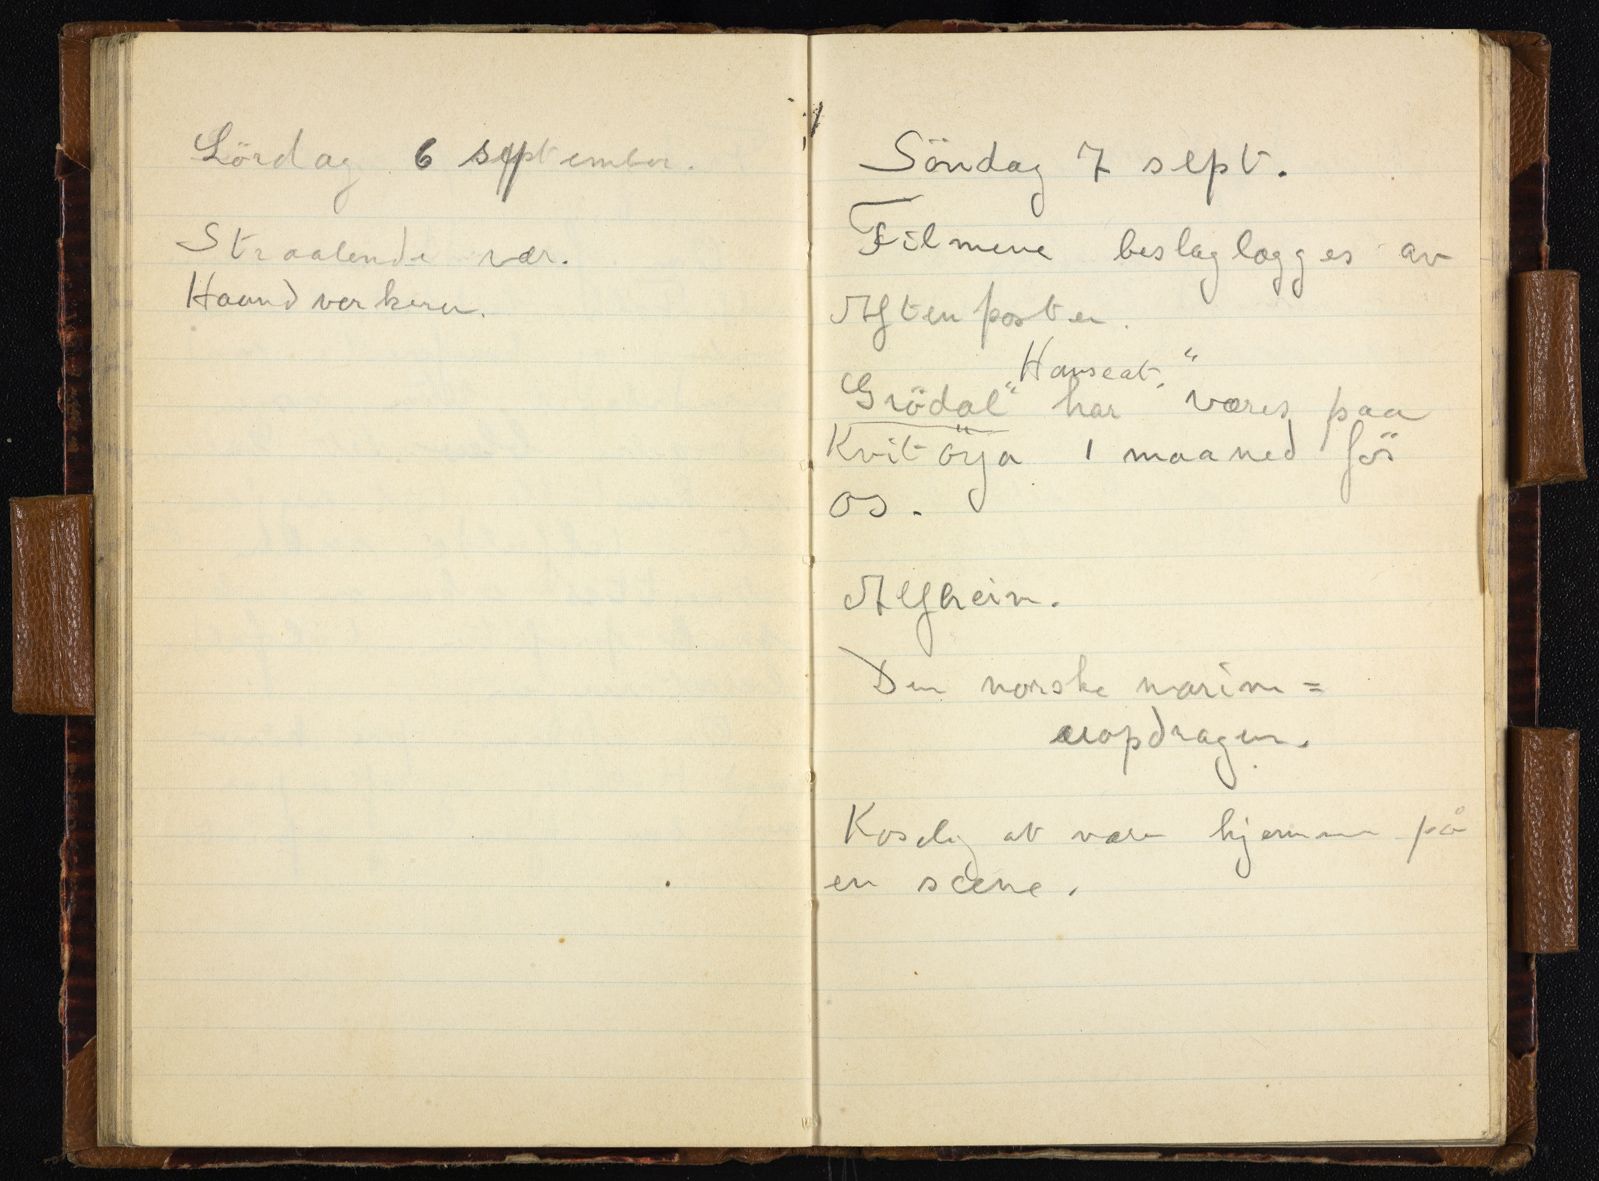 Lördag 6 september.
Straalende vær.
Haandverkeren.
Söndag 7 sept.
Filmene beslaglægges av
Aftenposten.
Hanseat."
"Grödal" har været paa
Kvitöya 1 maaned för
os.
Alfheim.
Den norske marine=
opdragen.
Koselig at være hjemme på
en scene.